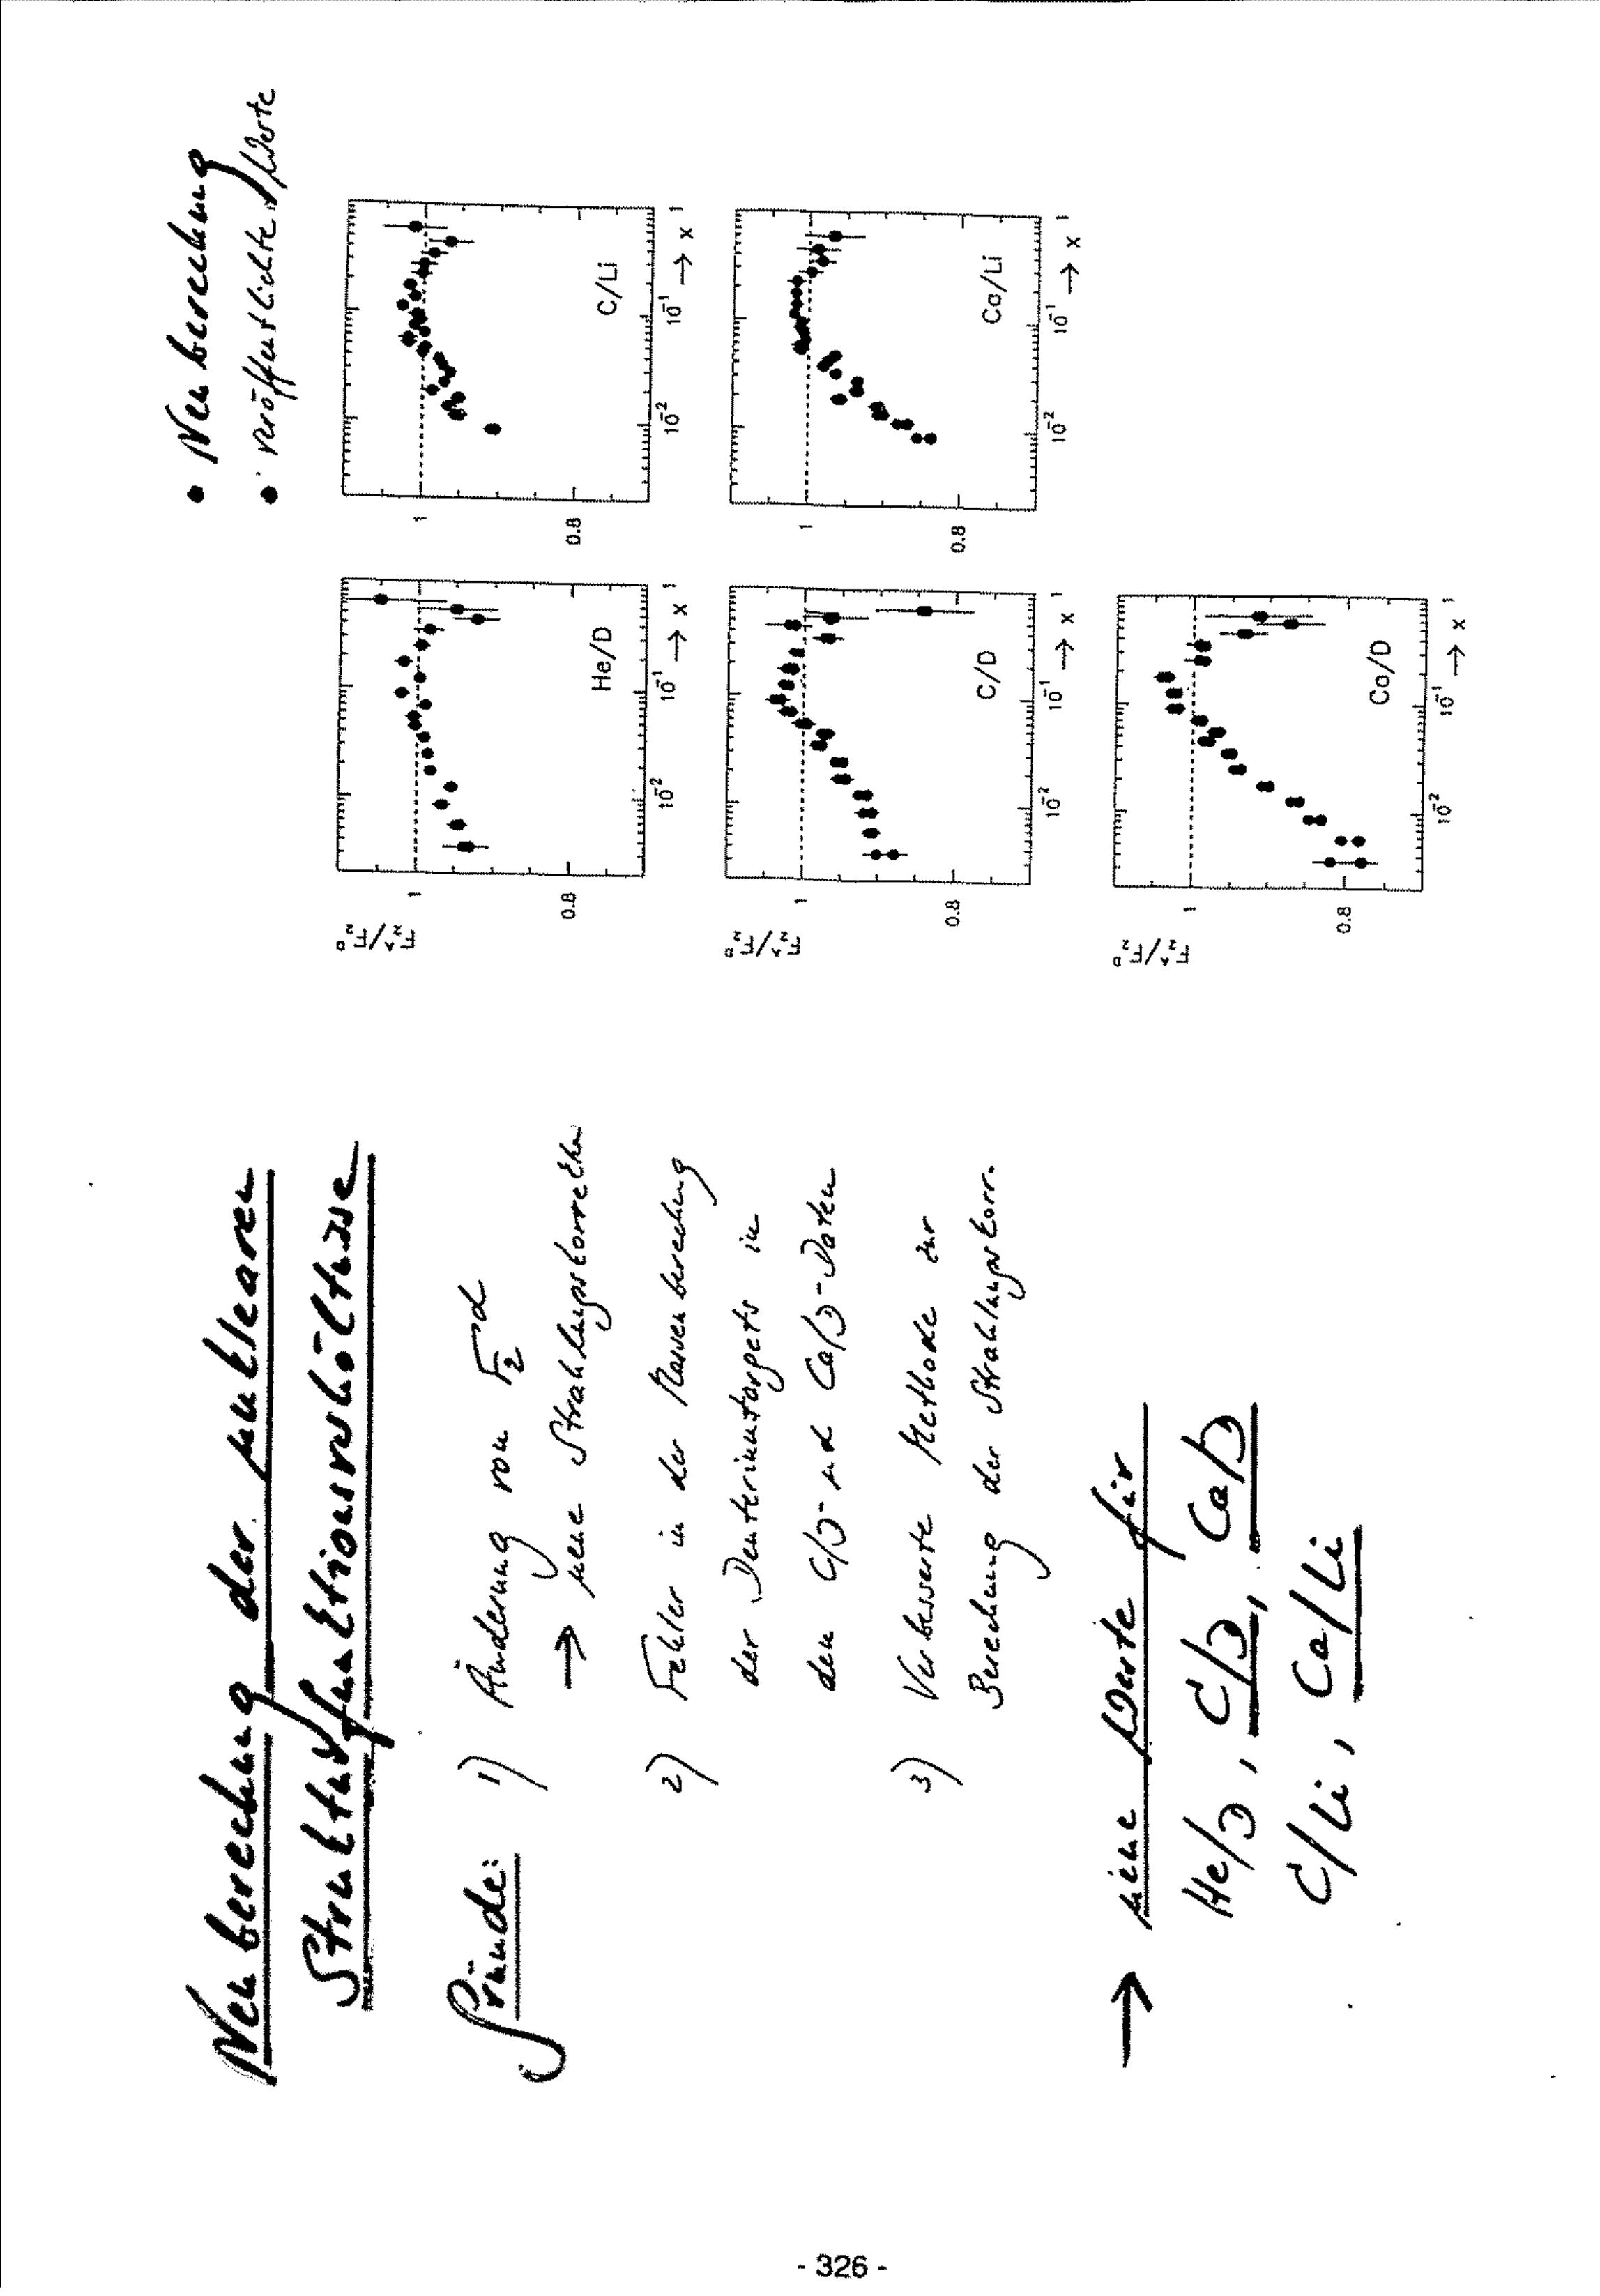 Neuberechnung der nuklearen
Strukturfunktionsverhältnisse
Gründe:
1) Änderung von F₂ᵈ
→ neue Strahlungskorrektur
2) Fehler in der Massenberechnung
der Deuteriumtargets in
den C/D- und Ca/D-Daten
3) Verbesserte Methode zur
Berechnung der Strahlungskorr.
→ neue Werte für
He/D, C/D, Ca/D
C/Li, Ca/Li
• Neuberechnung
• veröffentlichte Werte
F₂ᴬ/F₂ᴰ
1
0.8
He/D
10⁻²
10⁻¹
→ x
1
1
0.8
C/Li
10⁻²
10⁻¹
→ x
1
F₂ᴬ/F₂ᴰ
1
0.8
C/D
10⁻²
10⁻¹
→ x
1
1
0.8
Ca/Li
10⁻²
10⁻¹
→ x
1
F₂ᴬ/F₂ᴰ
1
0.8
Ca/D
10⁻²
10⁻¹
→ x
1
- 326 -